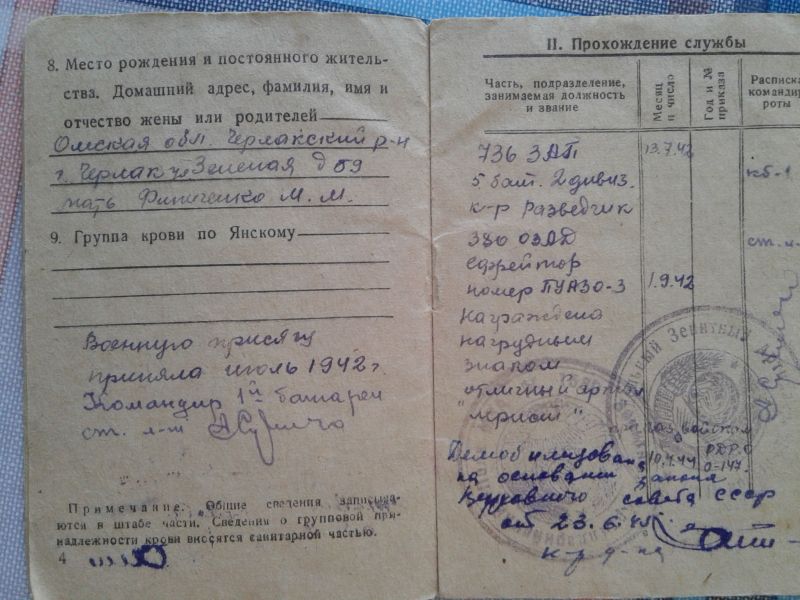 8. Место рождения и постоянного житель-
ства. Домашний адрес, фамилия, имя и
отчество жены или родителей
Омская обл. Черлакский р-н
г. Черлак ул Зеленая д 59
мать М. М.
9. Группа крови по Янскому
Военную присягу
приняла июль 1942 г.
Командир 1й батареи
ст. л-т
Примечание. Общие сведения записыва-
ются в штабе части. Сведения о групповой при-
надлежности крови вносятся санитарной частью.
4
II. Прохождение службы
Часть, подразделение,
занимаемая должность
и звание
Месяц
и число
Год и №
приказа
Расписка
командир
роты
736 ЗАП 13.7.42
5 бат. 2 дивиз.
к-р Разведчик
380 ОЗАД ст. л-
ефрейтор
номер ПУАЗО-3 1.9.42
награждена
нагрудным
знаком
отличный арти
Демобилизована
на основании закона
Верховного совета СССР
от 23.6.45 г.
к-р д-на